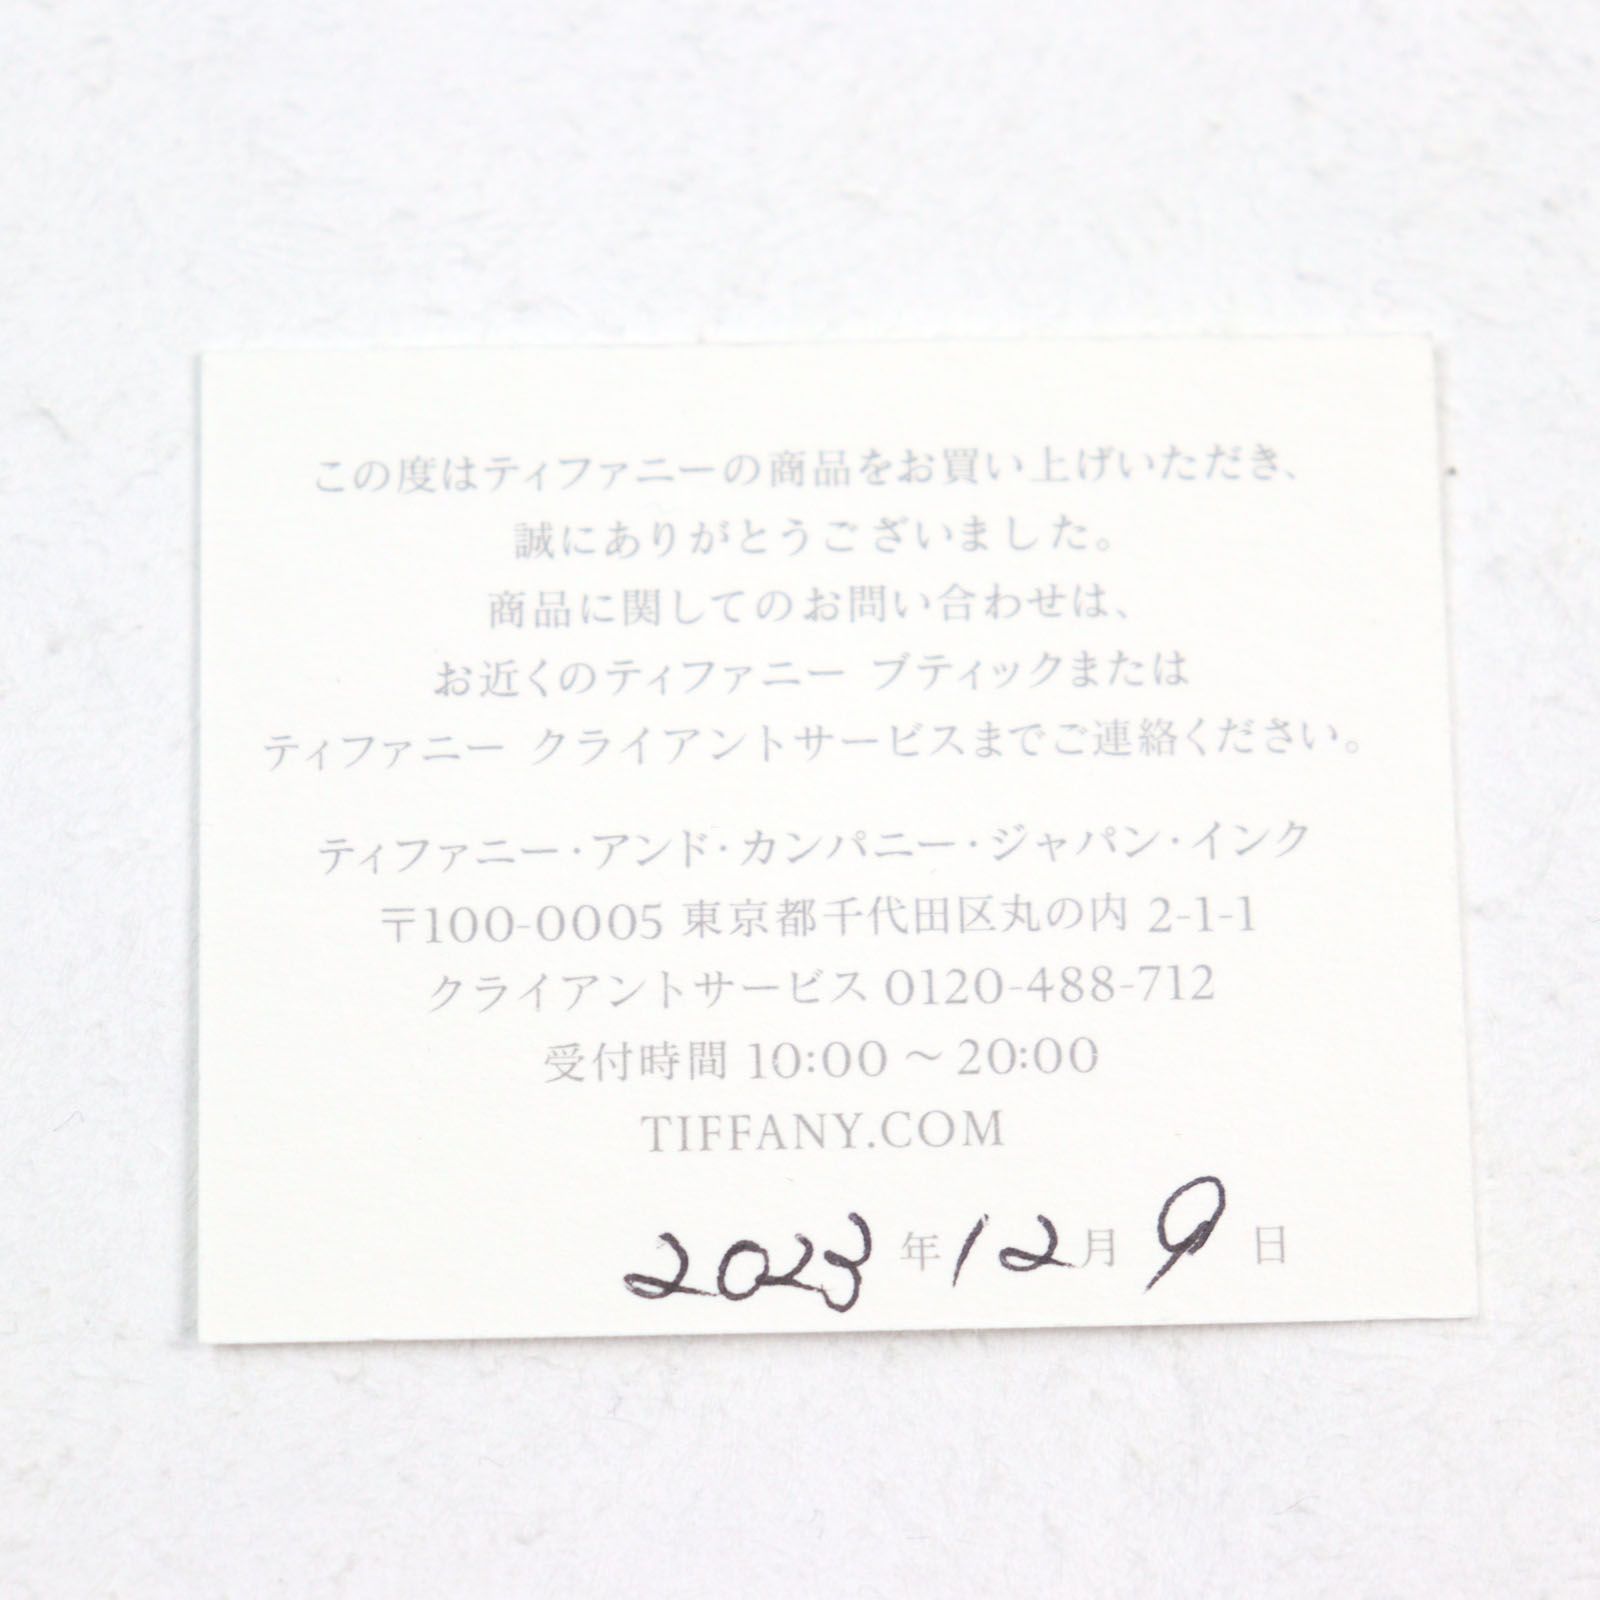 この度はティファニーの商品をお買い上げいただき、
誠にありがとうございました。
商品に関してのお問い合わせは、
お近くのティファニー ブティックまたは
ティファニー クライアントサービスまでご連絡ください。
ティファニー・アンド・カンパニー・ジャパン・インク
〒100-0005 東京都千代田区丸の内 2-1-1
クライアントサービス 0120-488-712
受付時間 10:00 ～ 20:00
TIFFANY.COM
2023 年 12 月 9 日